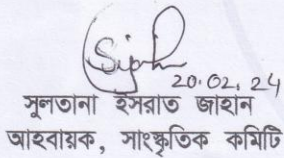 20.02.24
সুলতানা ইসরাত জাহান
আহবায়ক, সাংস্কৃতিক কমিটি